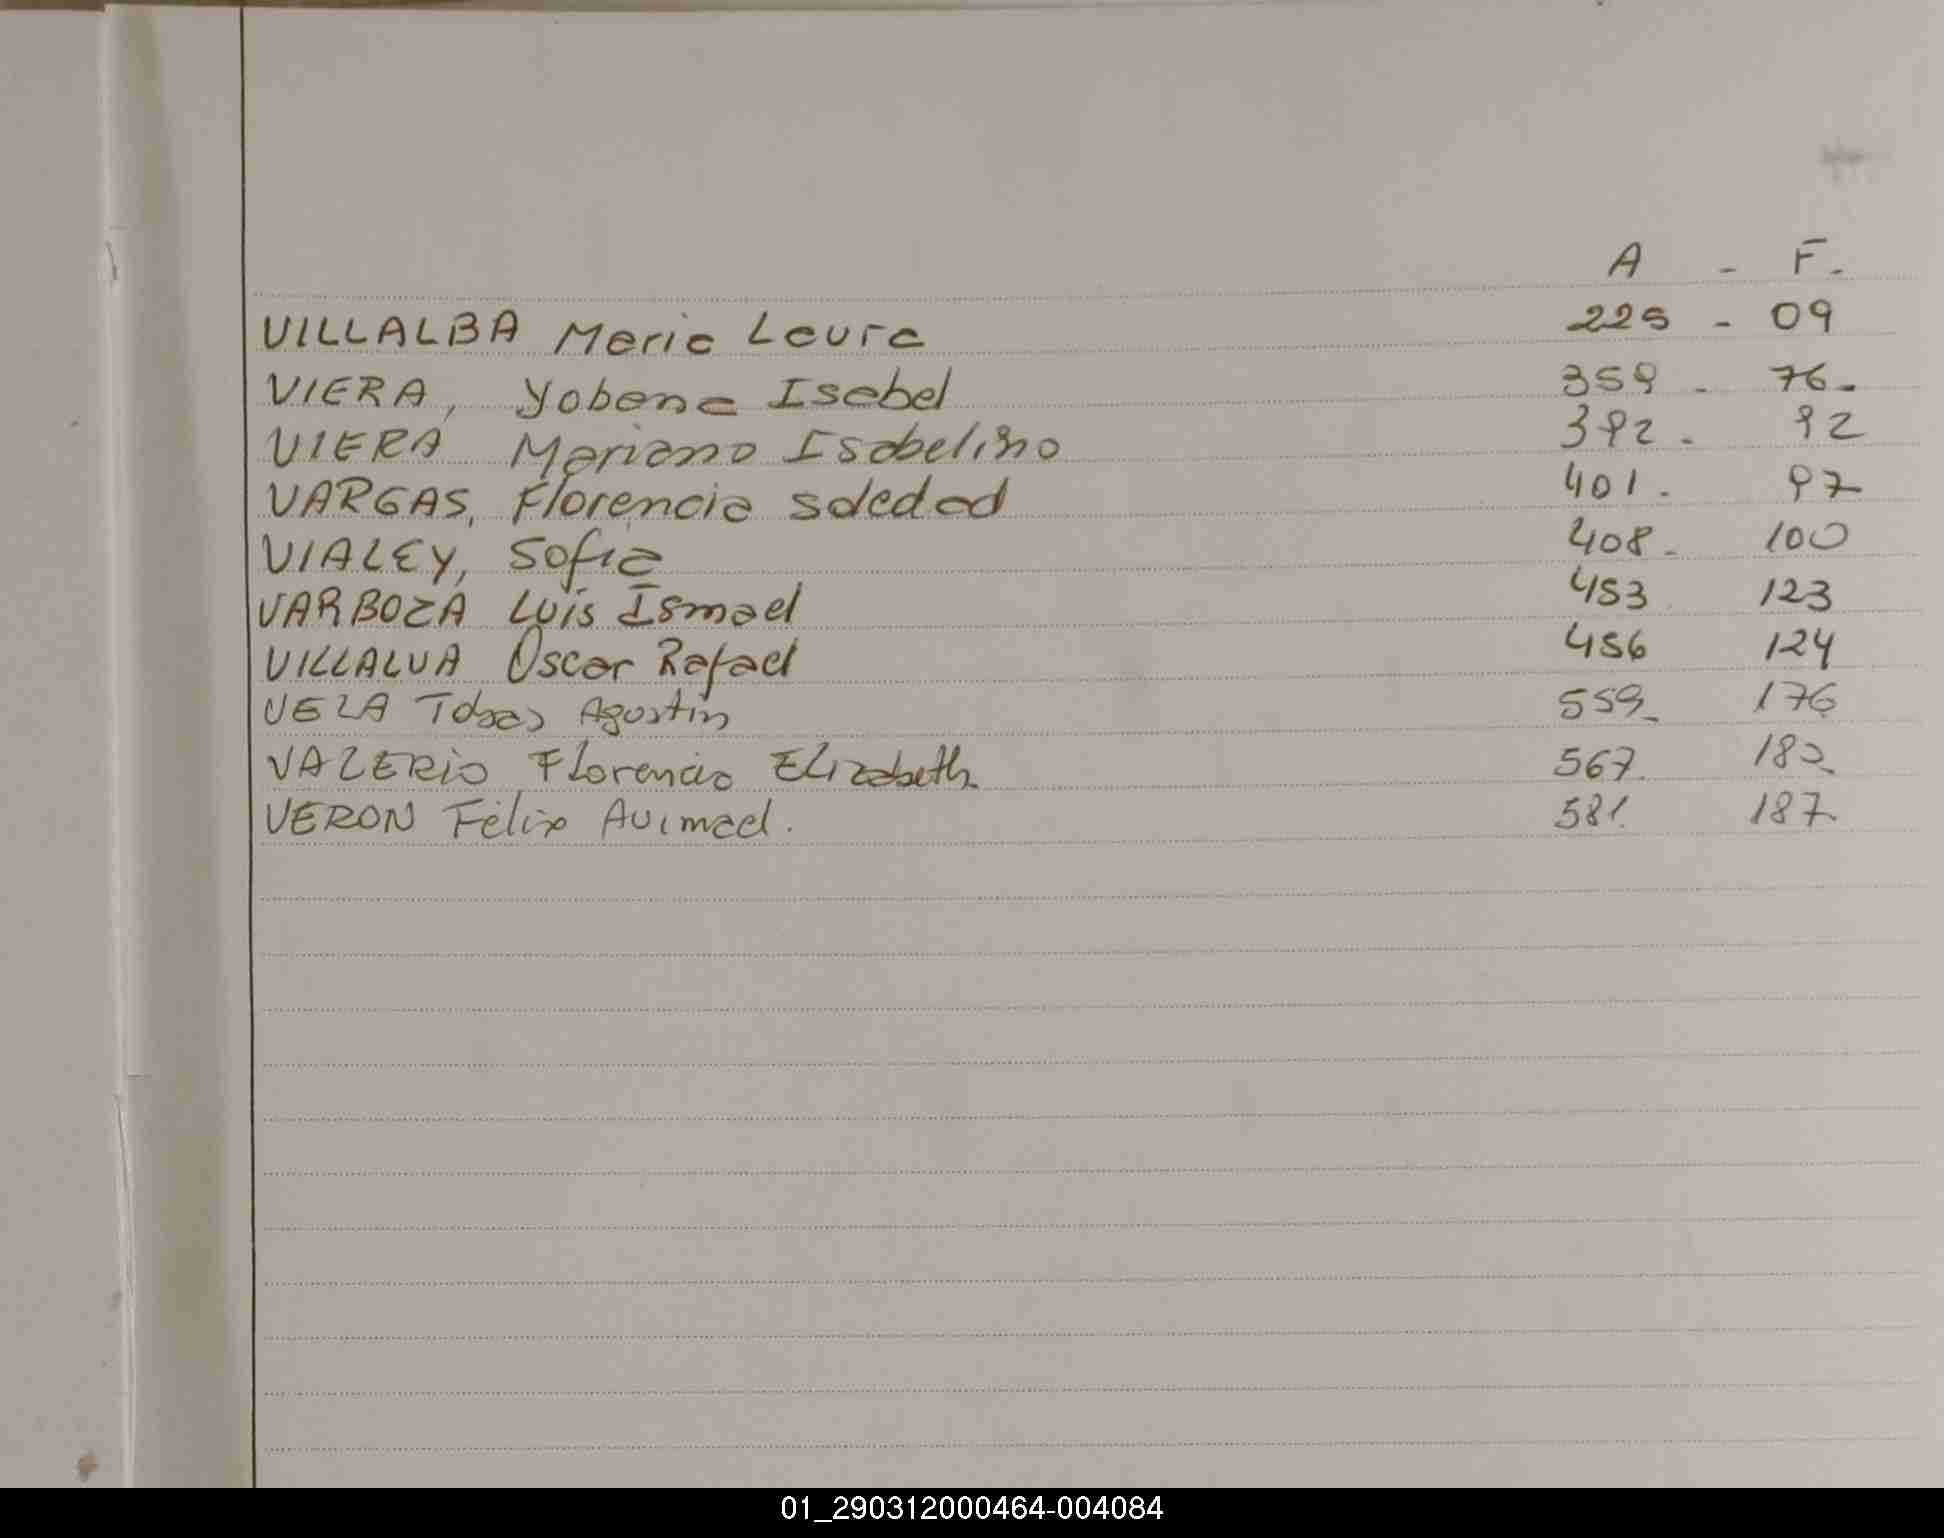 A - F.
VILLALBA Maria Laura 225 - 09
VIERA, Yobana Isabel 359 - 76.
VIERA Mariano Isabelino 392 - 92
VARGAS, Florencia Soledad 401 - 97
VIALEY, Sofia 408 - 100
VARBOZA Luis Ismael 453 123
VILLALVA Oscar Rafael 456 124
VEZA Tobias Agustin 559 176
VALERIO Florencio Elizabeth 567. 180
VERON Félix Avimael. 581. 187
01_290312000464-004084